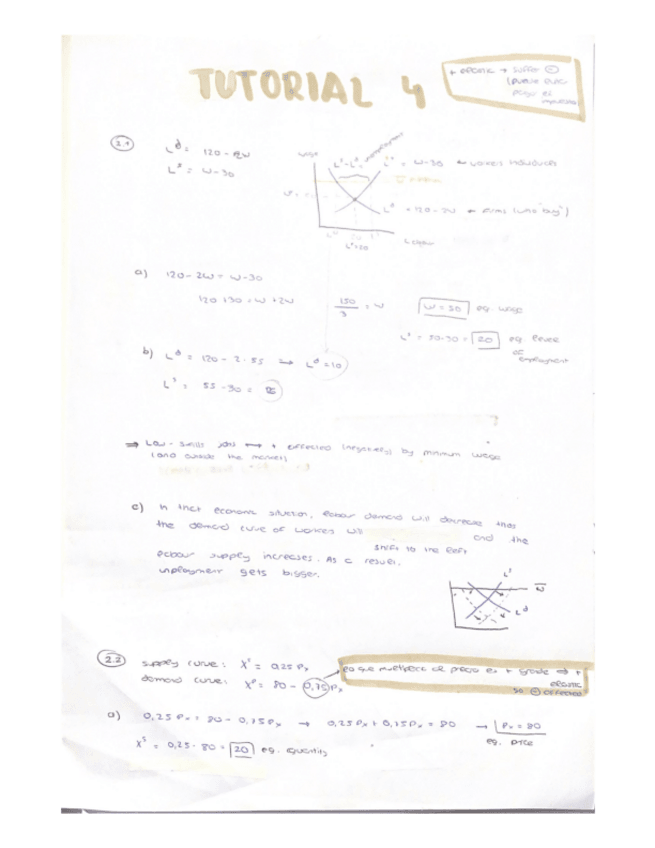 TUTORIAL 4
+ elastic → suffer ⊖
(puede que
pagar el
2.1
L^d = 120 - 2W
L^s = W-30
wage
L^s = W-30 ← workers individuals
L^d = 120-2W ← firms (who "buy")
Labour
a) 120-2W = W-30
120+30 = W+2W
150/3 = W
W = 50 eq. wage
L^s = 50-30 = 20 eq. level of employment
b) L^d = 120 - 2·55 ⟹ L^d = 10
L^s = 55-30 = 25
⇒ Low-skills jobs ⟷ + affected (negatively) by minimum wage
(and outside the market)
c) In that economic situation, labour demand will decrease thas
the demand curve of workers will shift to the left and the
labour supply increases. As a result,
unployment gets bigger.
L^s
W̅
L^d
2.2 supply curve: X^s = 0,25 Px
demand curve: X^D = 80 - 0,75 Px
lo que multiplica al precio es + grande ⇒ +
elastic
so ⊖ affected
a) 0,25 Px = 80 - 0,75 Px → 0,25 Px + 0,75 Px = 80 → Px = 80
eq. price
X^s = 0,25 · 80 = 20 eq. quantity